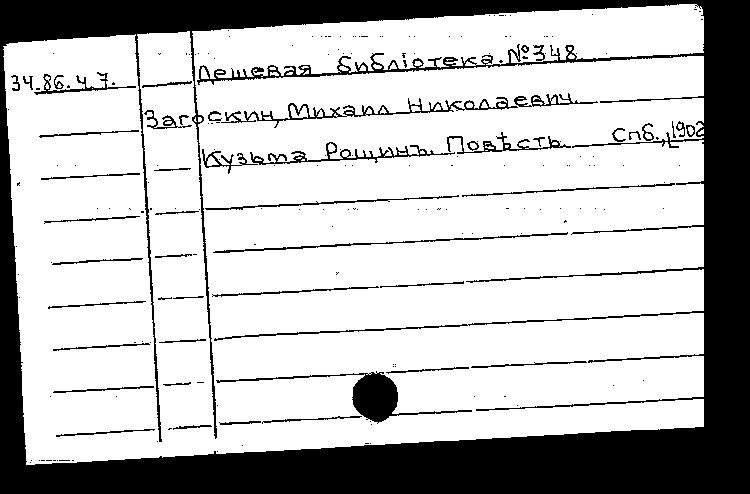 34.86.4.7. Дешевая библіотека. № 348
Загоскин, Михаил Николаевич.
Кузьма Рощинъ. Повѣсть. Спб., 1902